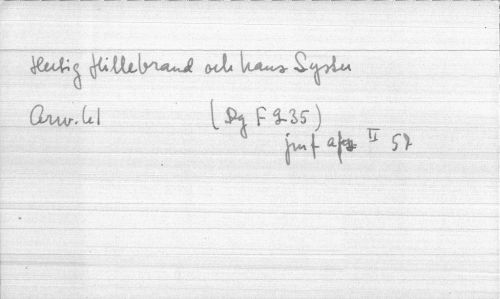 Hertig Hillebrand och hans Syster
Arw. 61 (Dg F 235)
jmf afz II 52